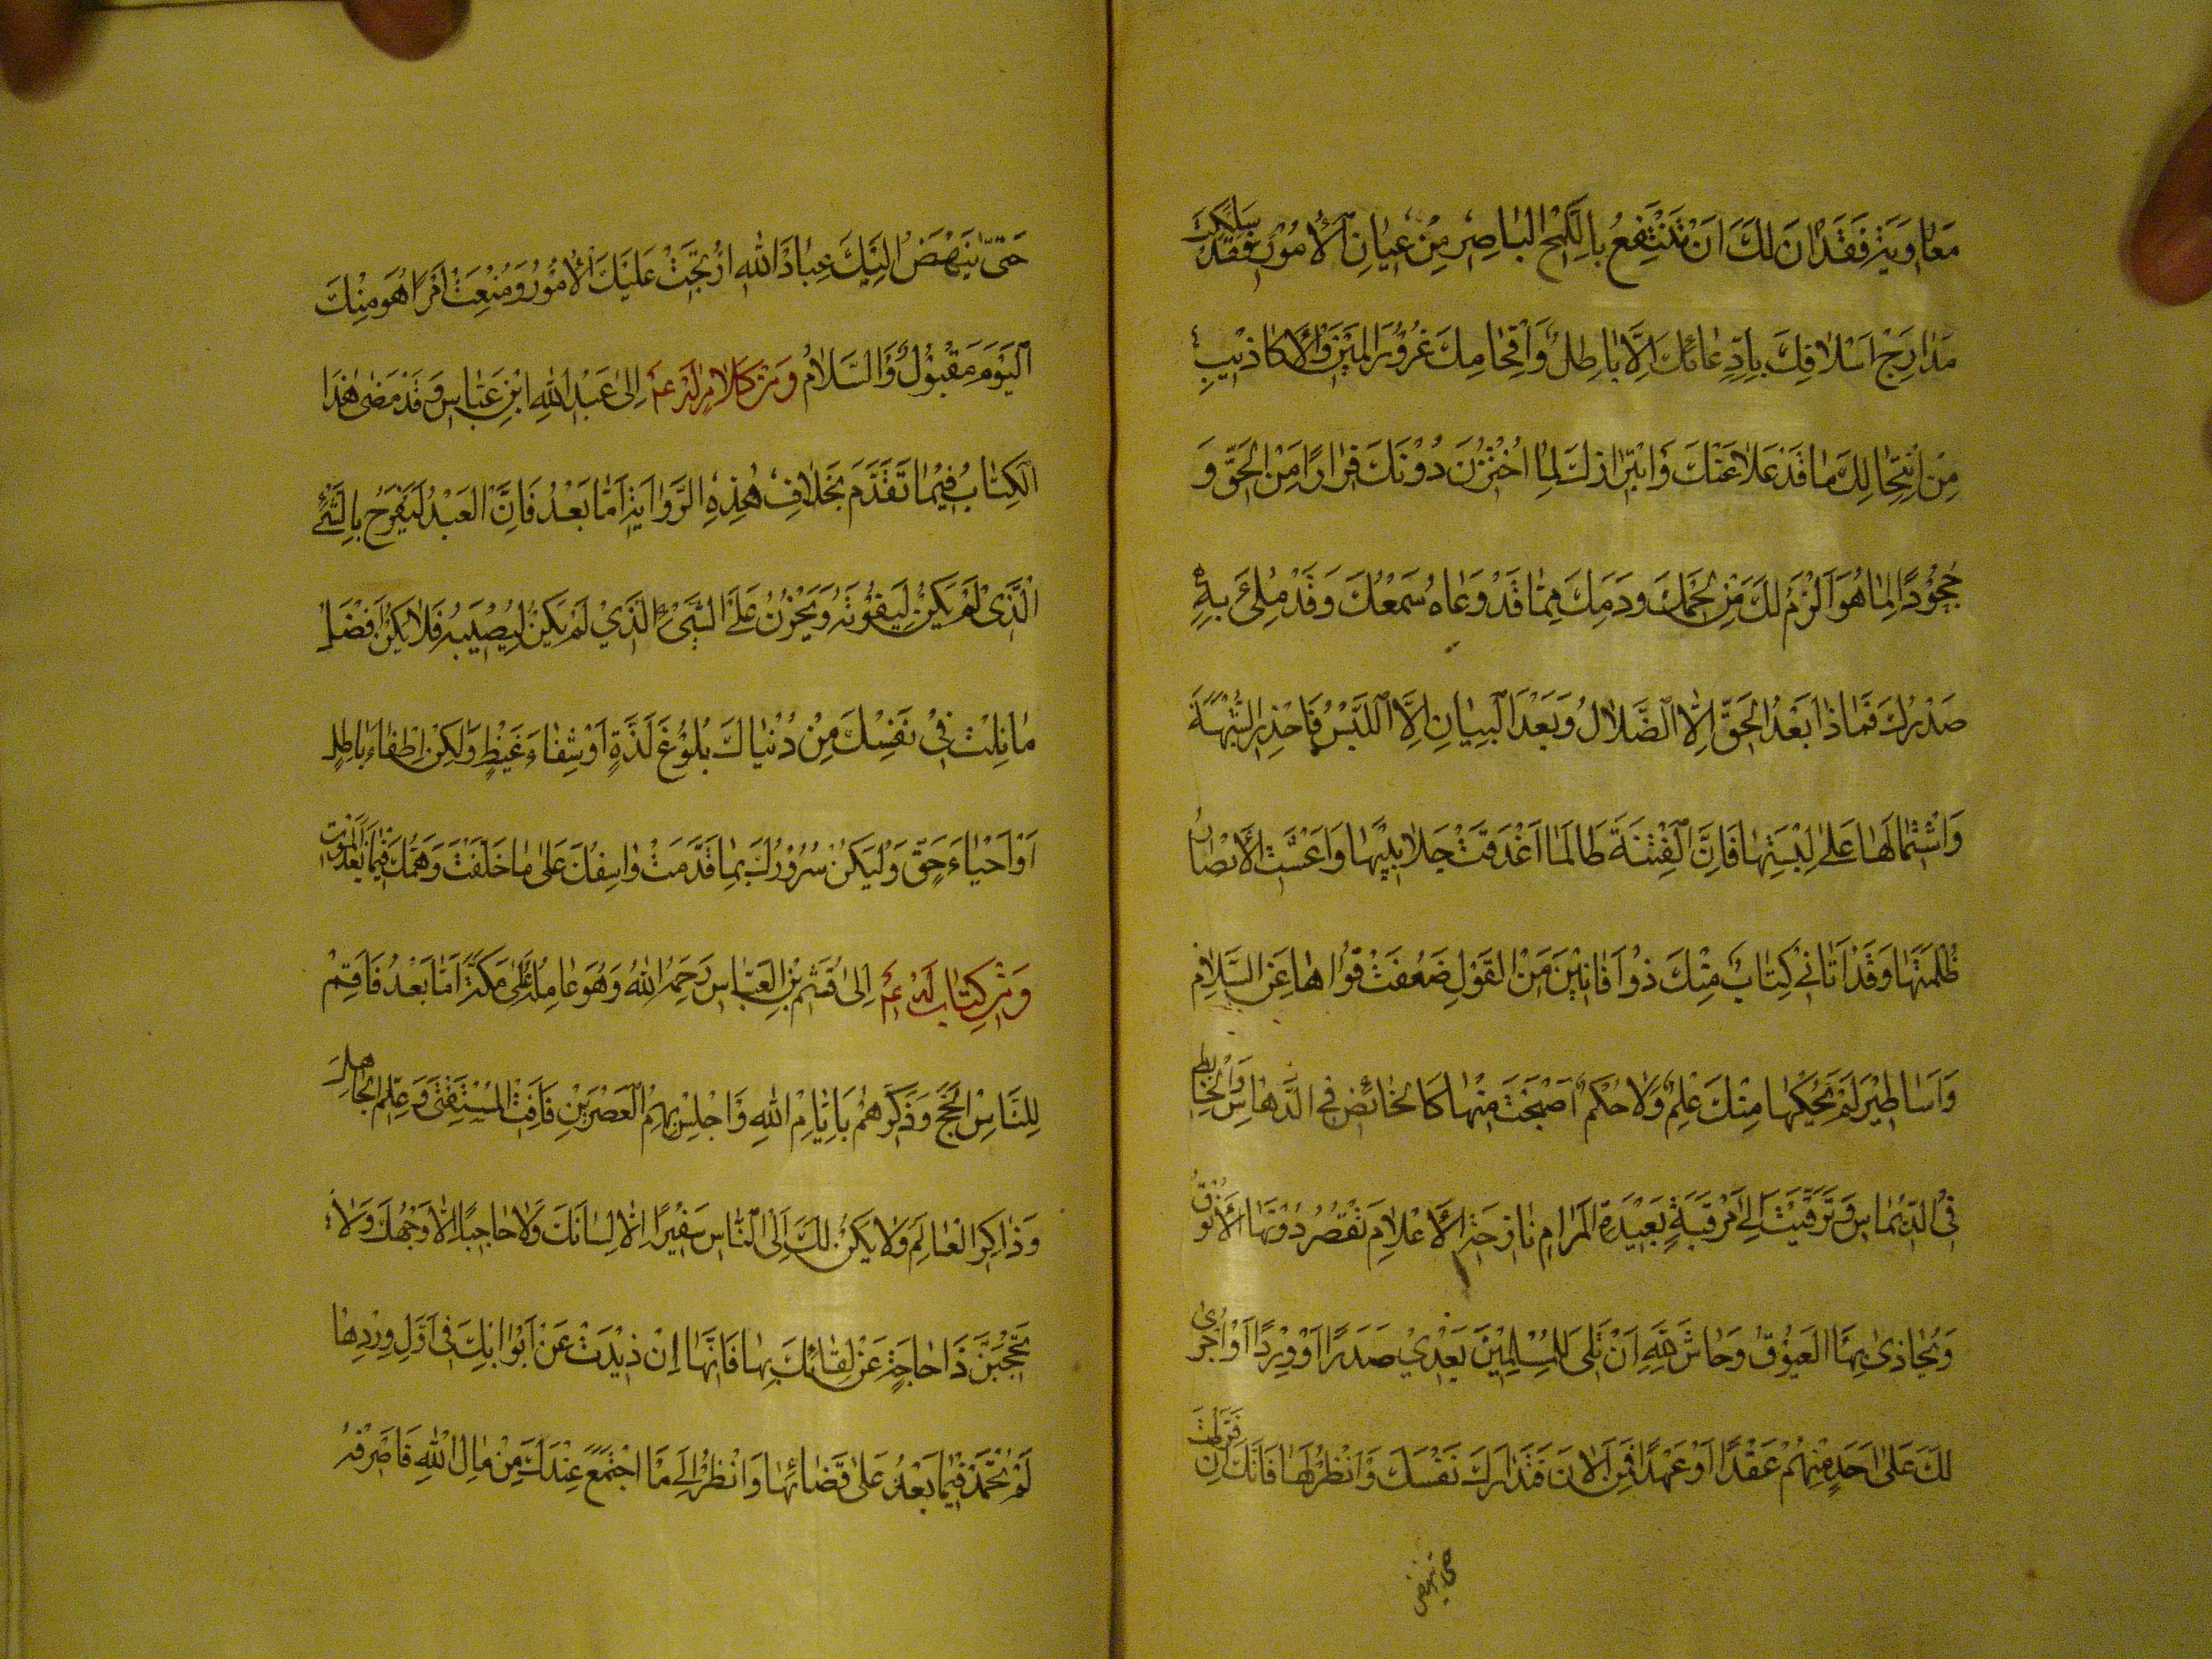 مَعَاوِيَةُ فَقَدْ اٰنَ لَكَ اَنْ تَنْتَفِعَ بِاللَّمْحِ الْبَاصِرِ مِنْ عِيَانِ الْاُمُوْرِ فَقَدْ سَلَكْتَ
مَدَارِجَ اَسْلَافِكَ بِادِّعَائِكَ الْاَبَاطِلَ وَاِقْحَامِكَ غُرُوْرَ الْمَيْنِ وَالْاَكَاذِيْبِ
مِنِ انْتِحَالِكَ مَا قَدْ عَلَا عَنْكَ وَابْتِزَازِكَ لِمَا اخْتُزِنَ دُوْنَكَ فِرَارًا مِنَ الْحَقِّ وَ
جُحُوْدًا لِمَا هُوَ اَلْزَمُ لَكَ مِنْ لَحْمِكَ وَدَمِكَ مِمَّا قَدْ وَعَاهُ سَمْعُكَ وَقَدْ مُلِئَ بِهٖ
صَدْرُكَ فَمَاذَا بَعْدَ الْحَقِّ اِلَّا الضَّلَالُ وَبَعْدَ الْبَيَانِ اِلَّا اللَّبْسُ فَاحْذَرِ الشُّبْهَةَ
وَاشْتِمَالَهَا عَلٰى لُبْسَتِهَا فَاِنَّ الْفِتْنَةَ طَالَمَا اَغْدَفَتْ جَلَابِيْبَهَا وَاَعْشَتِ الْاَبْصَارَ
ظُلْمَتُهَا وَقَدْ اَتَانِيْ كِتَابٌ مِنْكَ ذُوْ اَفَانِيْنَ مِنَ الْقَوْلِ ضَعُفَتْ قُوَاهَا عَنِ السِّلْمِ
وَاَسَاطِيْرَ لَمْ يَحُكْهَا مِنْكَ عِلْمٌ وَلَا حُكْمٌ اَصْبَحْتَ مِنْهَا كَالْخَائِضِ فِي الدَّهَاسِ وَالْخَابِطِ
فِي الدِّيْمَاسِ وَتَرَقَّيْتَ اِلٰى مَرْقَبَةٍ بَعِيْدَةِ الْمَرَامِ نَازِحَةِ الْاَعْلَامِ تَقْصُرُ دُوْنَهَا الْاَنُوْقُ
وَيُحَاذٰى بِهَا الْعَيُّوْقُ وَحَاشَ لِلّٰهِ اَنْ تَلِيَ لِلْمُسْلِمِيْنَ بَعْدِيْ صَدَرًا اَوْ وِرْدًا اَوْ اُجْرِيَ
لَكَ عَلٰى اَحَدٍ مِنْهُمْ عَقْدًا اَوْ عَهْدًا فَمِنَ الْاٰنَ فَتَدَارَكْ نَفْسَكَ وَانْظُرْ لَهَا فَاِنَّكَ اِنْ فَرَّطْتَ
حتى ينهض
حَتّٰى يَنْهَضَ اِلَيْكَ عِبَادُ اللهِ اُرْتِجَتْ عَلَيْكَ الْاُمُوْرُ وَمُنِعْتَ اَمْرًا هُوَ مِنْكَ
الْيَوْمَ مَقْبُوْلٌ وَالسَّلَامُ وَمِنْ كَلَامٍ لَهُ عم اِلٰى عَبْدِ اللهِ ابْنِ عَبَّاسٍ وَقَدْ مَضٰى هٰذَا
الْكِتَابُ فِيْمَا تَقَدَّمَ بِخِلَافِ هٰذِهِ الرِّوَايَةِ اَمَّا بَعْدُ فَاِنَّ الْعَبْدَ لَيَفْرَحُ بِالشَّيْءِ
الَّذِيْ لَمْ يَكُنْ لِيَفُوْتَهُ وَيَحْزَنُ عَلَى الشَّيْءِ الَّذِيْ لَمْ يَكُنْ لِيُصِيْبَهُ فَلَا يَكُنْ اَفْضَلَ
مَا نِلْتَ فِيْ نَفْسِكَ مِنْ دُنْيَاكَ بُلُوْغَ لَذَّةٍ اَوْ شِفَاءَ غَيْظٍ وَلٰكِنْ اِطْفَاءَ بَاطِلٍ
اَوْ اَحْيَاءَ حَقٍّ وَلْيَكُنْ سُرُوْرُكَ بِمَا قَدَّمْتَ وَاَسَفُكَ عَلٰى مَا خَلَّفْتَ وَهَمُّكَ فِيْمَا بَعْدَ الْمَوْتِ
وَمِنْ كِتَابٍ لَهُ عم اِلٰى قُثَمِ بْنِ الْعَبَّاسِ رَحِمَهُ اللهُ وَهُوَ عَامِلُهُ عَلٰى مَكَّةَ اَمَّا بَعْدُ فَاَقِمْ
لِلنَّاسِ الْحَجَّ وَذَكِّرْهُمْ بِاَيَّامِ اللهِ وَاجْلِسْ بِهِمُ الْعَصْرَيْنِ فَاَفْتِ الْمُسْتَفْتِيَ وَعَلِّمِ الْجَاهِلَ
وَذَاكِرِ الْعَالِمَ وَلَا يَكُنْ لَكَ اِلَى النَّاسِ سَفِيْرًا اِلَّا لِسَانَكَ وَلَا حَاجِبًا اِلَّا وَجْهَكَ وَلَا
تَحْجُبَنَّ ذَا حَاجَةٍ عَنْ لِقَائِكَ بِهَا فَاِنَّهَا اِنْ ذِيْدَتْ عَنْ اَبْوَابِكَ فِيْ اَوَّلِ وِرْدِهَا
لَمْ تُحْمَدْ فِيْمَا بَعْدُ عَلٰى قَضَائِهَا وَانْظُرْ اِلٰى مَا اجْتَمَعَ عِنْدَكَ مِنْ مَالِ اللهِ فَاصْرِفْهُ